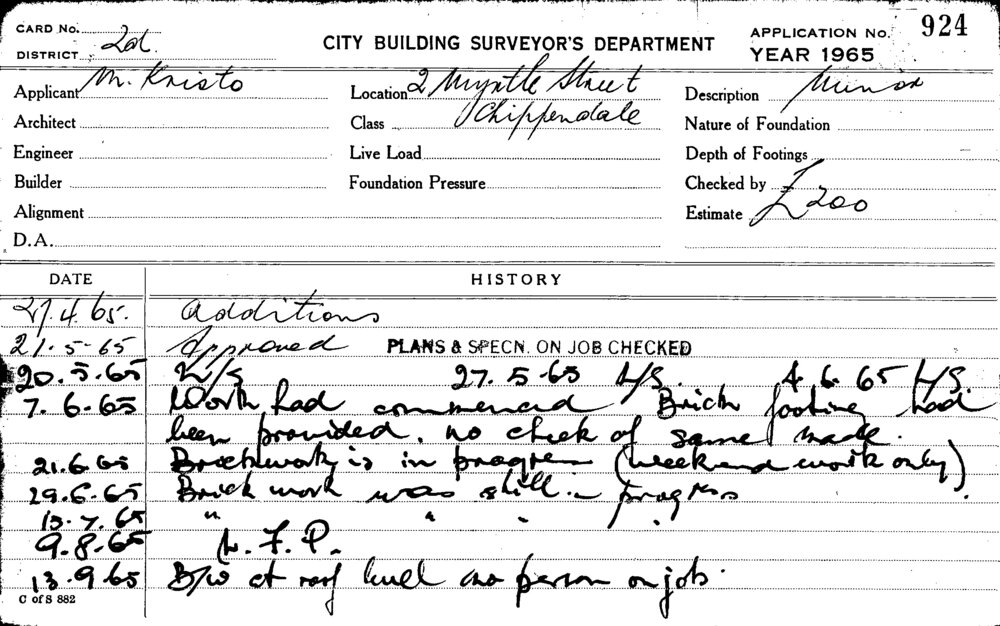 CARD No.
DISTRICT 2d.
CITY BUILDING SURVEYOR'S DEPARTMENT
APPLICATION No. 924
YEAR 1965
Applicant M. Kristo
Location 2 Myrtle Street
Description Minor
Architect
Class Chippendale
Nature of Foundation
Engineer
Live Load
Depth of Footings
Builder
Foundation Pressure
Checked by
Alignment
Estimate £200
D.A.
DATE HISTORY
27.4.65. Additions
21.5-65 Approved PLANS & SPECN. ON JOB CHECKED
20.5.65 N/S 27.5-65 N/S. 4.6.65 N/S.
7.6-65 Work had commenced Brick footing had
been provided. no check of same made.
21.6.65 Brickwork is in progress (weekend work only)
29.6.65 Brick work was still in progress
13.7.65 " " " "
9.8.65 N.F.P.
13.9.65 B/W at roof level no person on job.
C of S 882